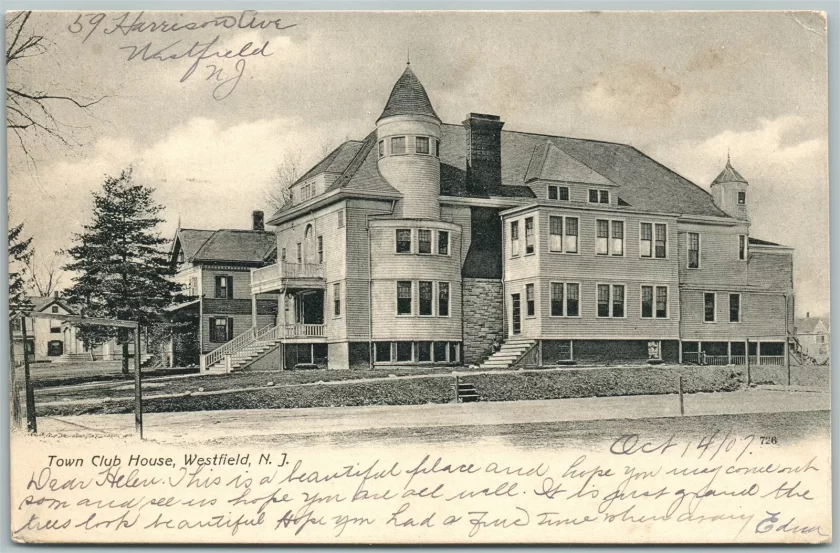 59 Harrison Ave
Westfield
N.J.
Oct 14/07.
726
Town Club House, Westfield, N. J.
Dear Helen. This is a beautiful place and hope you may come out
som and see us hope you are all well. It is just grand the
trees look beautiful Hope you had a fine time when away
Edna